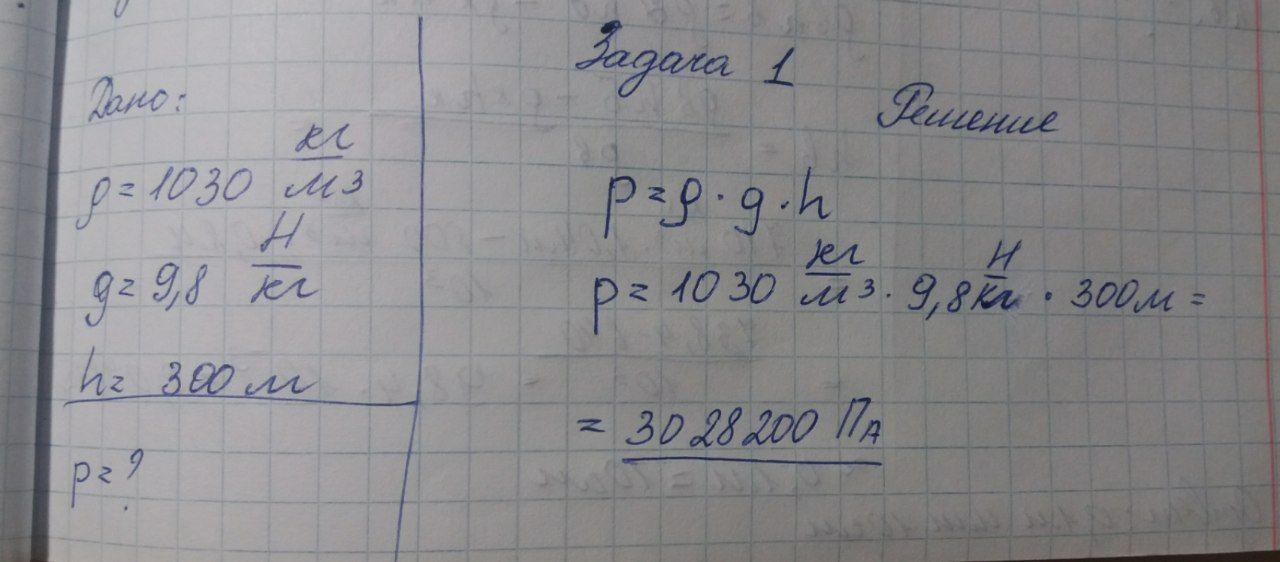 Задача 1
Дано:
ρ = 1030 кг/м3
g = 9,8 Н/кг
h = 300 м
p = ?
Решение
p = ρ · g · h
p = 1030 кг/м3 · 9,8 Н/кг · 300м =
= 3028200 Па